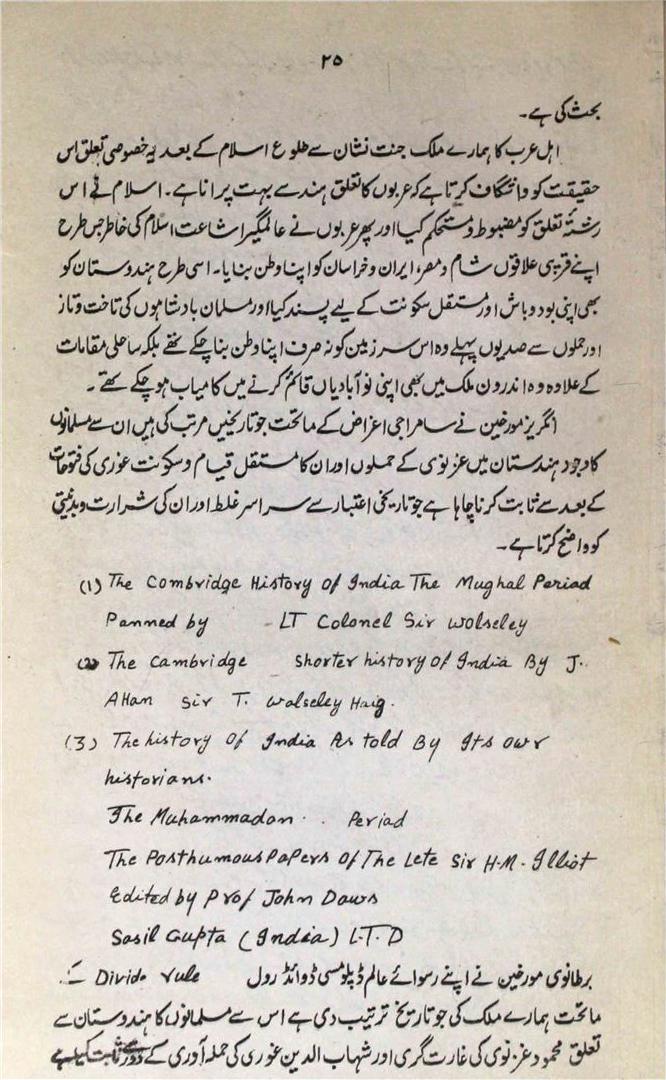 ۲۵
بحث کی ہے۔
اہل عرب کا ہمارے ملک جنت نشان سے طلوع اسلام کے بعد یہ خصوصی تعلق اس
حقیقت کو واشگاف کرتا ہے کہ عربوں کا تعلق ہند سے بہت پرانا ہے۔ اسلام نے اس
رشتۂ تعلق کو مضبوط و مستحکم کیا اور پھر عربوں نے عالمگیر اشاعت اسلام کی خاطر جس طرح
اپنے قریبی علاقوں شام و مصر، ایران و خراسان کو اپنا وطن بنایا۔ اسی طرح ہندوستان کو
بھی اپنی بود و باش اور مستقل سکونت کے لیے پسند کیا اور مسلمان بادشاہوں کی تاخت و تاز
اور حملوں سے صدیوں پہلے وہ اس سرزمین کو نہ صرف اپنا وطن بنا چکے تھے بلکہ ساحلی مقامات
کے علاوہ وہ اندرون ملک میں بھی اپنی نو آبادیاں قائم کرنے میں کامیاب ہو چکے تھے۔
انگریز مورخین نے سامراجی اغراض کے ماتحت جو تاریخیں مرتب کی ہیں ان سے مسلمانوں
کا وجود ہندستان میں غزنوی کے حملوں اور ان کا مستقل قیام و سکونت غوری کی فتوحات
کے بعد سے ثابت کرنا چاہا ہے جو تاریخی اعتبار سے سراسر غلط اور ان کی شرارت و بدنیتی
کو واضح کرتا ہے۔
(1) The Combridge History of India The Mughal Periad
Panned by - LT Colonel Sir Wolseley
(2) The Cambridge shorter history of India By J.
Allan Sir T. Walseley Haig.
(3) The history Of India As told By Its owr
historians.
The Muhammadon . . Periad
The Posthumous Papers of The Lete Sir H.M. Illiot
Edited by Prof John Daws
Sasil Gupta (India) L.T.D
برطانوی مورخین نے اپنے رسوائے عالم ڈپلومسی ڈوائڈ رول Divide rule کے
ماتحت ہمارے ملک کی جو تاریخ ترتیب دی ہے اس سے مسلمانوں کا ہندوستان سے
تعلق محمود غزنوی کی غارت گری اور شہاب الدین غوری کی حملہ آوری کے